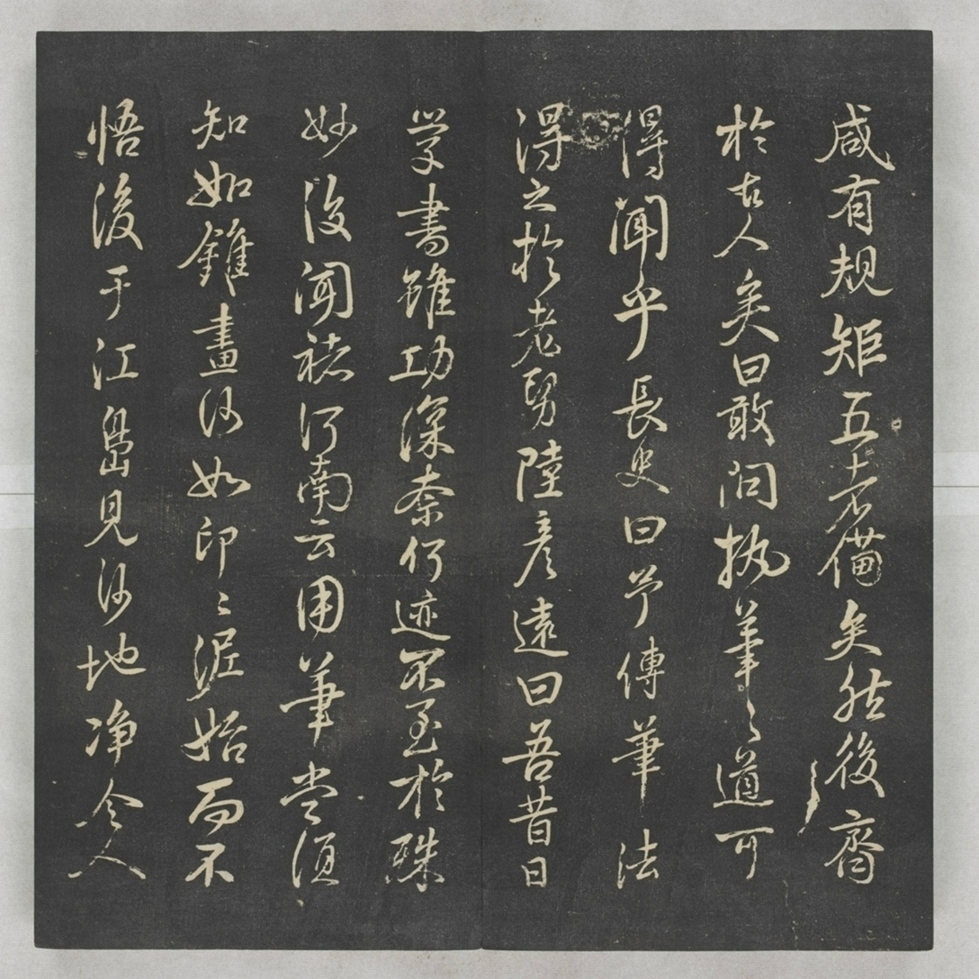 咸有規矩五者備矣然後齊
於古人矣曰敢問執筆之道可
得聞乎長史曰予傳筆法
得之於老舅陸彥遠曰吾昔日
学書雖功深奈何迹不至於殊
妙後聞褚河南云用筆當須
知如錐畫沙如印印泥始而不
悟後于江島見沙地净令人